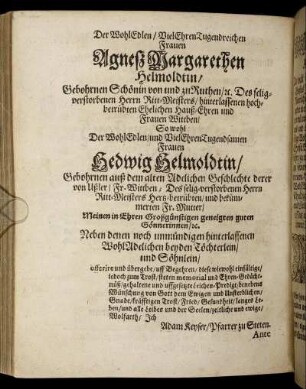 Der WohlEdlen/ VielEhrenTugendreichen
Frauen
Agneß Margarethen
Helmoldtin/
Gebohrnen Schönin von und zu Ruthen/ ꝛc. Des selig-
verstorbenen Herrn Ritt-Meisters/ hinterlassenen hoch-
betrübten Ehelichen Hauß-Ehren und
Frauen Witben/
So wohl
Der WohlEdlen/ und VielEhrenTugendsamen
Frauen
Hedwig Helmoldtin/
Gebohrnen auß dem alten Adelichen Geschlechte derer
von Ußler/ Fr-Witben/ Des selig-verstorbenen Herrn
Ritt-Meisters Hertz-betrübten/ und bekümmerten Fr. Mutter/
Meinen in Ehren Großgünstigen geneigten guten
Gönnerinnen/ ꝛc.
Neben denen noch unmündigen hinterlassenen
WohlAdelichen beyden Töchterlein/
und Söhnlein/
offerire und übergebe/ auff Begehren/ diese wiewohl einfältige/
jedoch zum Trost/ stetem memorial und Ehren-Gedächt-
nüß/ gehaltene und auffgesetzte Leichen-Predigt/ benebens
Wünschung von Gott dem Ewigen und Unsterblichen/
Gnade/ kräfftigen Trost/ Fried/ Gesundheit/ langes Le-
ben/ und alle Leibes und der Seelen/ zeitliche und ewige/
Wolfarth/ Ich
Adam Keyser/ Pfarrer zu Steten.
Ante